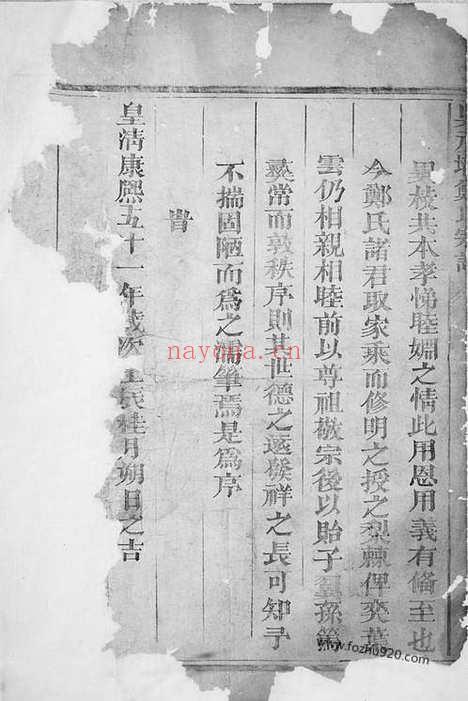 異枝共本孝悌睦婣之情此用恩用義有俻至也
今鄭氏諸君取家乗而修明之授之梨棘俾奕葉
雲仍相親相睦前以尊祖敬宗後以貽子翼孫篤
彞常而敦秩序則其世德之遠發祥之長可知予
不揣固陋而爲之濡筆焉是爲序
旹
皇淸康熙五十一年歲次壬辰桂月朔日之吉
nayona.cn
www.fozhu920.com